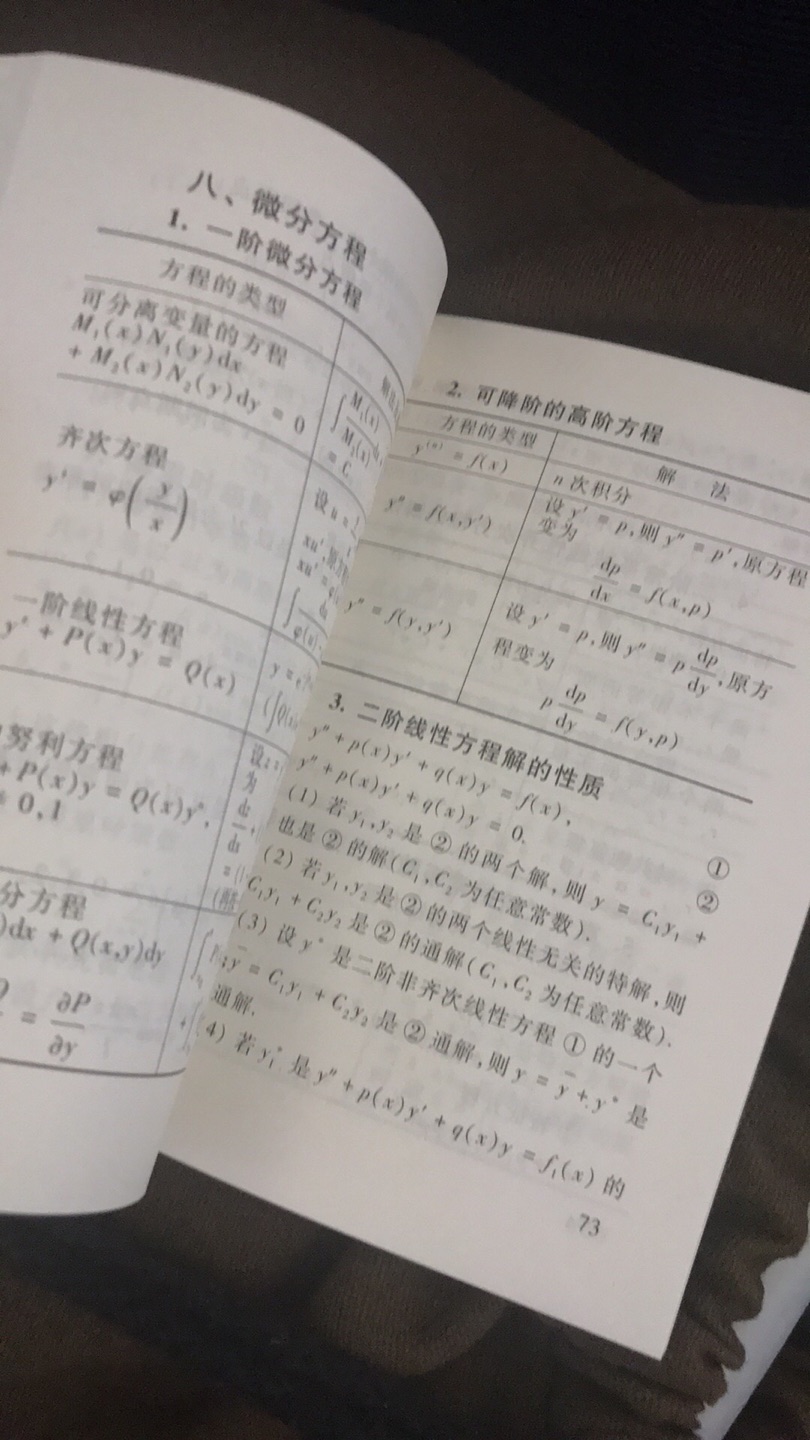 八、微分方程
1. 一阶微分方程
方程的类型
可分离变量的方程
M₁(x)N₁(y)dx
+ M₂(x)N₂(y)dy = 0
∫ M₁(x)/M₂(x)
= C
齐次方程
y' = φ(y/x)
设 u =
一阶线性方程
y' + P(x)y = Q(x)
努利方程
+ P(x)y = Q(x)yⁿ,
0,1
为
分方程
)dx + Q(x,y)dy
= ∂P/∂y
2. 可降阶的高阶方程
方程的类型 解 法
y⁽ⁿ⁾ = f(x) n 次积分
y″ = f(x,y′) 设 y′ = p,则 y″ = p′,原方程
变为
dp/dx = f(x,p)
y″ = f(y,y′) 设 y′ = p,则 y″ = p dp/dy,原方
程变为
p dp/dy = f(y,p)
3. 二阶线性方程解的性质
y″ + p(x)y′ + q(x)y = f(x), ①
y″ + p(x)y′ + q(x)y = 0. ②
(1) 若 y₁,y₂ 是 ② 的两个解,则 y = C₁y₁ +
也是 ② 的解(C₁,C₂ 为任意常数).
(2) 若 y₁,y₂ 是 ② 的两个线性无关的特解,则
C₁y₁ + C₂y₂ 是 ② 的通解(C₁,C₂ 为任意常数).
(3) 设 y* 是二阶非齐次线性方程 ① 的一个
ȳ = C₁y₁ + C₂y₂ 是 ② 通解,则 y = ȳ + y* 是
通解.
4) 若 y₁* 是 y″ + p(x)y′ + q(x)y = f₁(x) 的
73